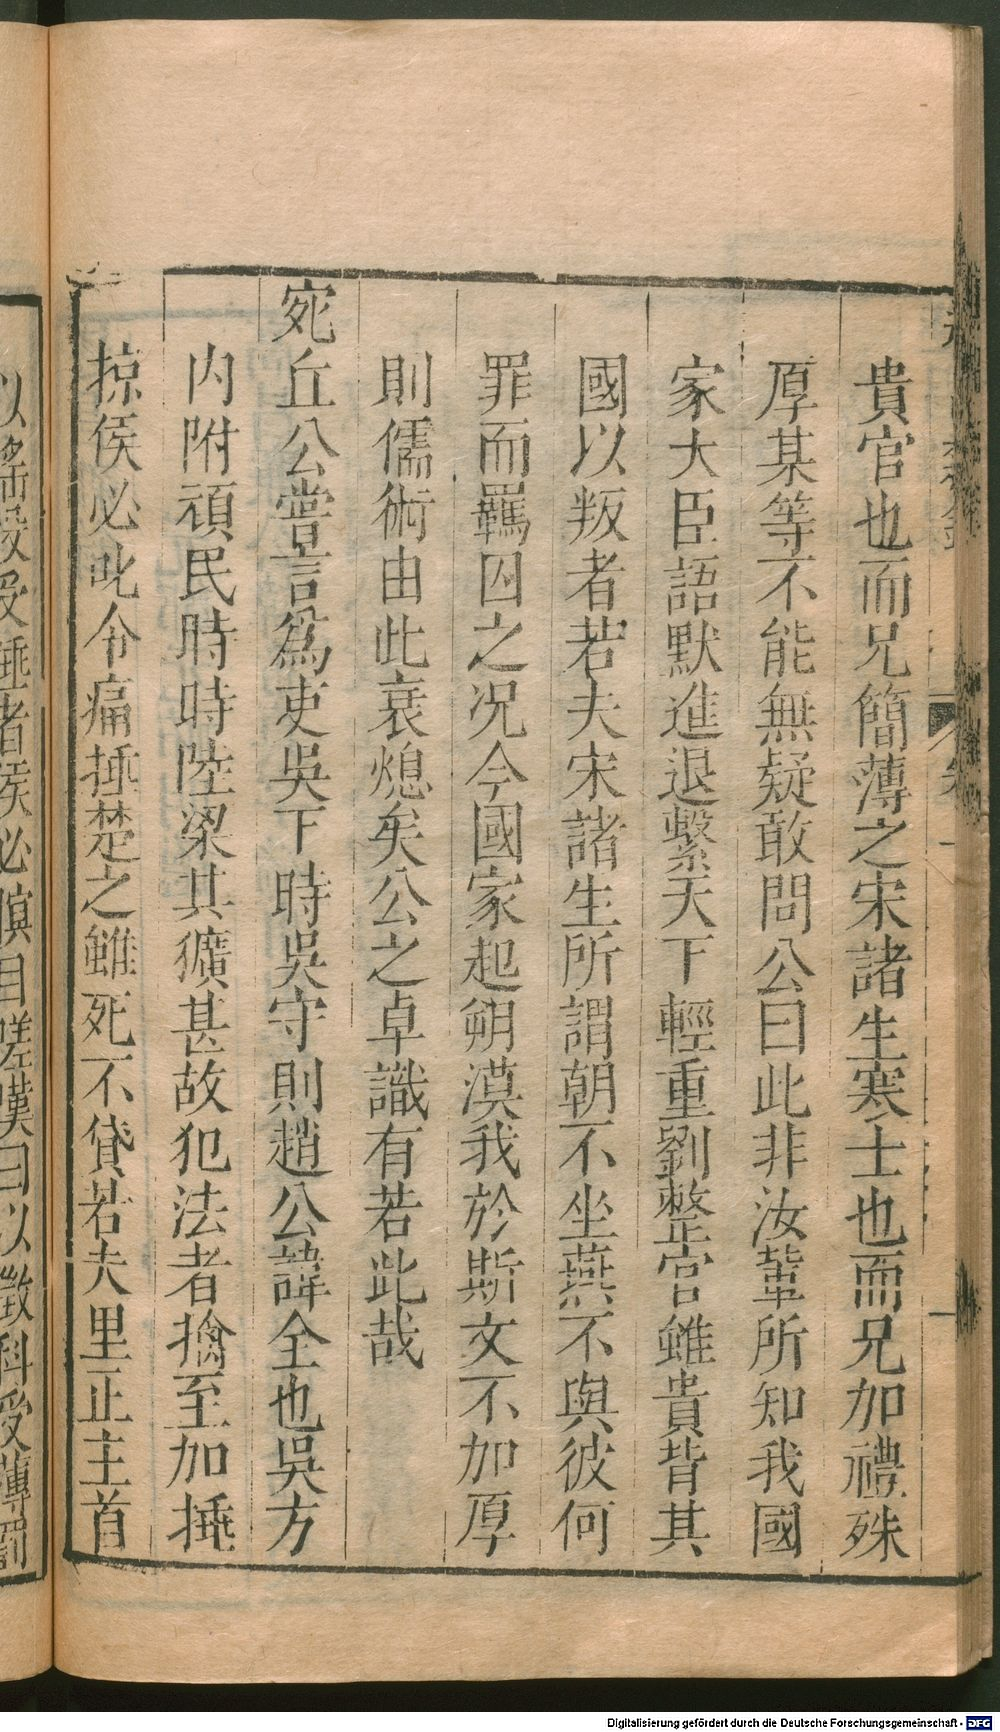 貴官也而兄簡薄之宋諸生寒士也而兄加禮殊
厚某等不能無疑敢問公曰此非汝輩所知我國
家大臣語默進退繫天下輕重劉整官雖貴背其
國以叛者若夫宋諸生所謂朝不坐燕不與彼何
罪而羈囚之况今國家起朔漠我於斯文不加厚
則儒術由此衰熄矣公之卓識有若此哉
宛丘公嘗言爲吏吳下時吳守則趙公諱全也吳方
內附頑民時時陸梁其獷甚故犯法者擒至加捶
掠侯必叱令痛捶楚之雖死不貸若夫里正主首
以徵科受薄罰
Digitalisierung gefördert durch die Deutsche Forschungsgemeinschaft - DFG